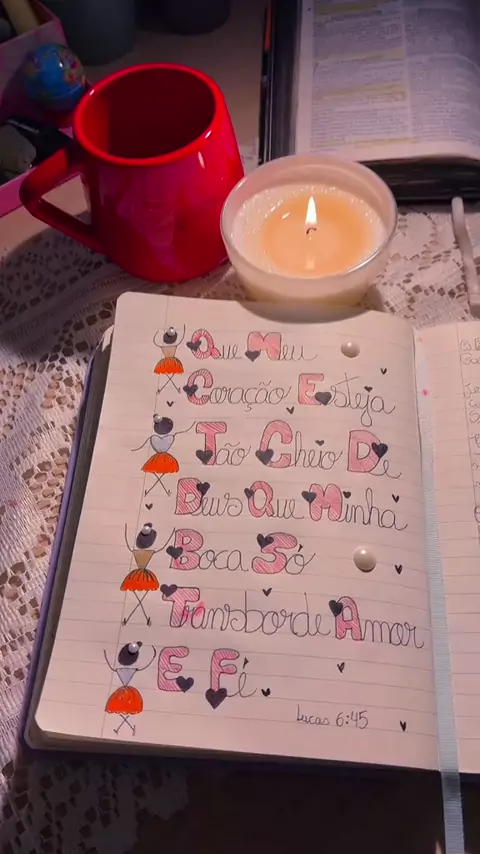 Que Meu
Coração Esteja
Tão Cheio De
Deus Que Minha
Boca Só
Transborde Amor
E Fé
Lucas 6:45